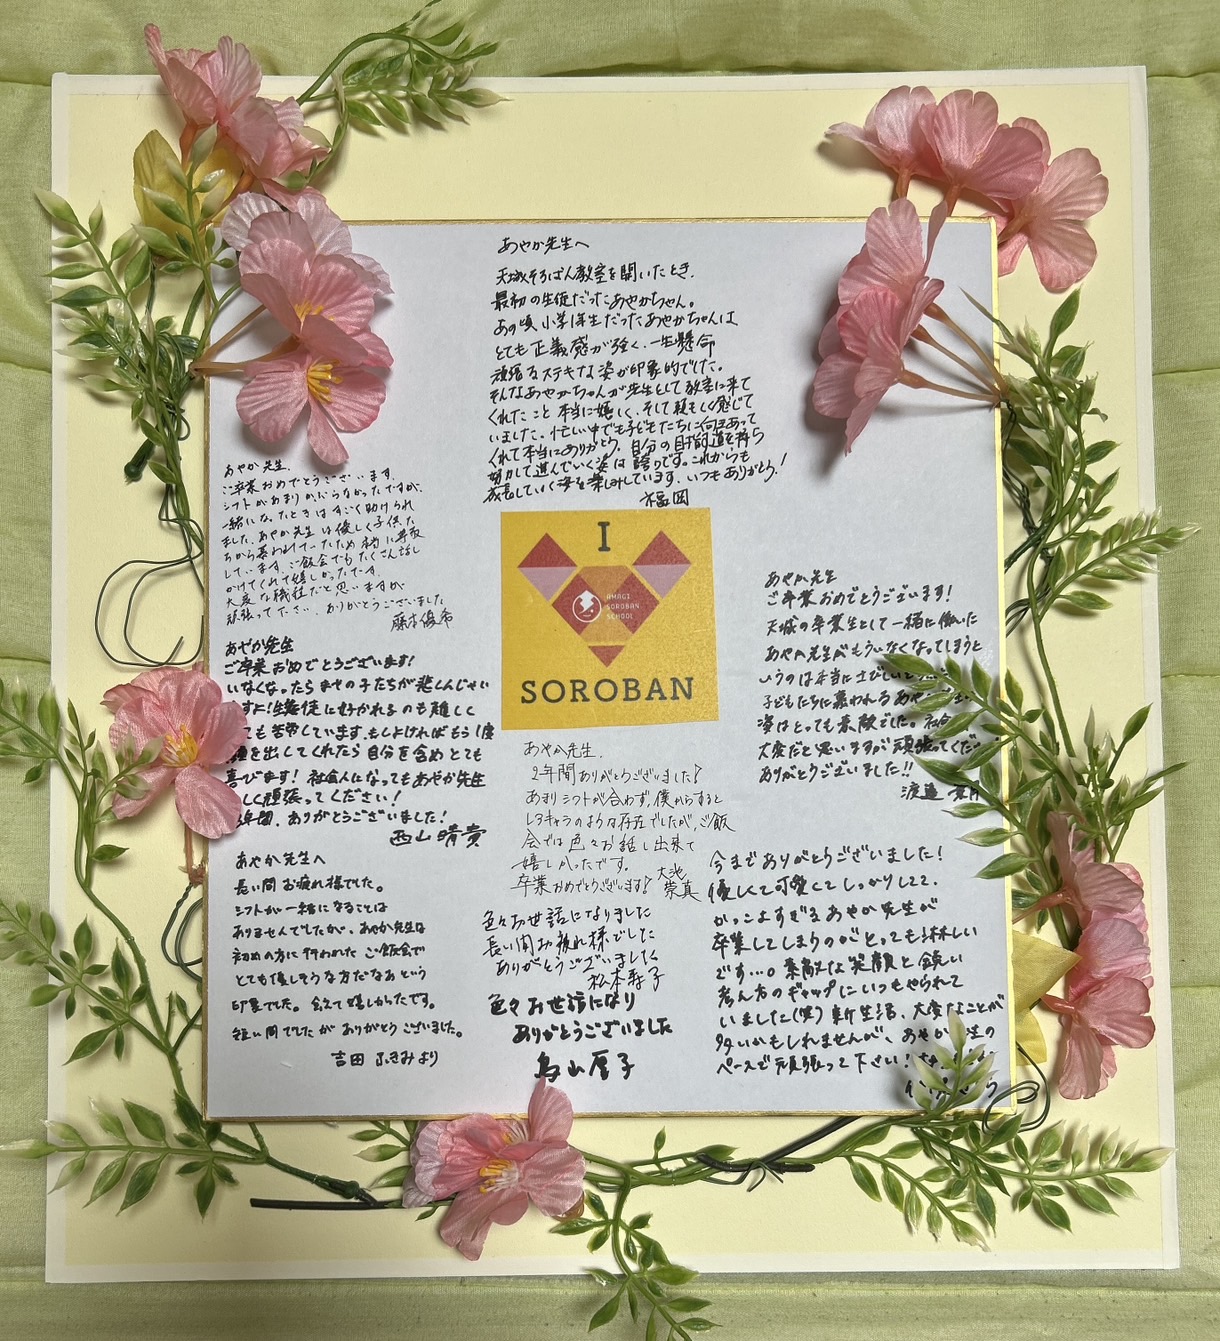 あやか先生へ
天城そろばん教室を開いたとき、
最初の生徒だったあやかちゃん。
あの頃小学1年生だったあやかちゃんは
とても正義感が強く、一生懸命
頑張るステキな姿が印象的でした。
そんなあやかちゃんが先生として教室に来て
くれたこと本当に嬉しく、そして頼もしく感じて
いました。忙しい中でも子どもたちに向きあって
くれて本当にありがとう。自分の目的達を持ち
努力して進んでいく姿は誇りです。これからも
成長していく姿を楽しみしています。いつもありがとう!
福岡
I
AMAGI
SOROBAN
SCHOOL
SOROBAN
あやか先生、
ご卒業おめでとうございます。
シフトがあまりかぶらなかったですが、
一緒になったときはすごく助けられ
ました。あやか先生は優しく子供た
ちから慕われていたため本当に尊敬
しています。ご飯会でもたくさん話し
かけてくれて嬉しかったです。
大変な職種だと思いますが
頑張ってください。ありがとうございました
藤本優希
あやか先生
ご卒業おめでとうございます!
いなくなったらませの子たちが悲しんじゃい
ますよ!生徒に好かれるのも難しく
ても苦労しています。もしよければもう1度
を出してくれたら自分を含めとても
喜びます! 社会人になってもあやか先生
しく頑張ってください!
年間、ありがとうございました!
西山晴貴
あやか先生へ
長い間お疲れ様でした。
シフトが一緒になることは
ありませんでしたが、あやか先生は
初めの方に行われたご飯会で
とても優しそうな方だなぁという
印象でした。会えて嬉しかったです。
短い間でしたがありがとうございました。
吉田 ふきみより
あやか先生、
2年間ありがとうございました♪
あまりシフトが合わず、僕からすると
レアキャラのような存在でしたが、ご飯
会では色々お話し出来て
嬉しかったです。
卒業おめでとうございます♪
大池
崇真
色々お世話になりました
長い間お疲れ様でした
ありがとうございました
松本寿子
色々お世話になり
ありがとうございました
鳥山厚子
あやか先生
ご卒業おめでとうございます!
天城の卒業生として一緒に働いた
あやか先生がもういなくなってしまうと
いうのは本当にさびしい
子どもたちに慕われるあや
姿はとっても素敵でした。社会
大変だと思いますが頑張ってくだ
ありがとうございました!!
渡邉
今までありがとうございました!
優しくて可愛くてしっかりしてて、
かっこよすぎるあやか先生が
卒業してしまうのがとっても淋しい
です…。素敵な笑顔と鋭い
考え方のギャップにいつもやられて
いました(笑) 新生活、大変なことが
多いかもしれませんが、あやか先生の
ペースで頑張って下さい!